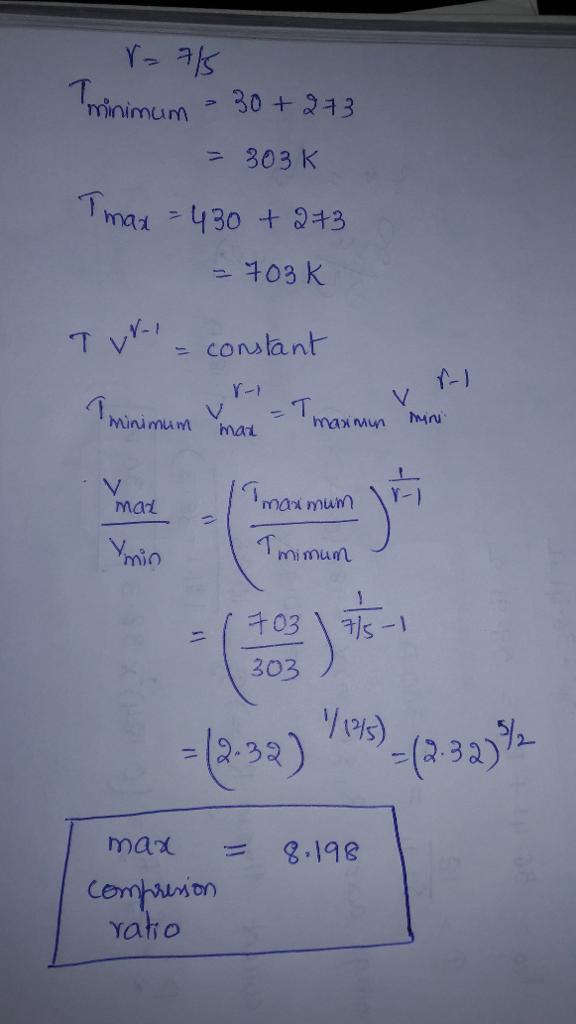 r = 7/5
Tminimum = 30 + 273
= 303 K
Tmax = 430 + 273
= 703 K
T V^r-1 = constant
Tminimum Vmax^r-1 = Tmaximun Vmini^r-1
Vmax/Vmin = (Tmaximum/Tmimum)^1/r-1
= (703/303)^1/7/5-1
= (2.32)^1/(2/5) = (2.32)^5/2
max = 8.198
compression
ratio